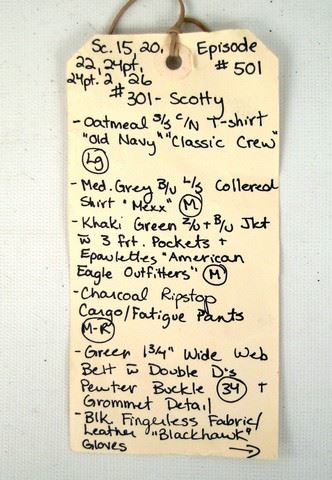 Sc. 15, 20, Episode
22, 24pt, # 501
24pt. 2, 26
#301 - Scotty
- Oatmeal S/S C/N T-shirt
"Old Navy" "Classic Crew"
Lg
- Med. Grey B/U L/S Collered
Shirt "Mexx" M
- Khaki Green Z/U + B/U Jkt
w 3 frt. Pockets +
Epaulettes "American
Eagle Outfitters" M
- Charcoal Ripstop
Cargo/Fatigue Pants
M-R
- Green 1 3/4" Wide Web
Belt w Double D's
Pewter Buckle 34 +
Grommet Detail
- Blk Fingerless Fabric/
Leather "Blackhawk"
Gloves →